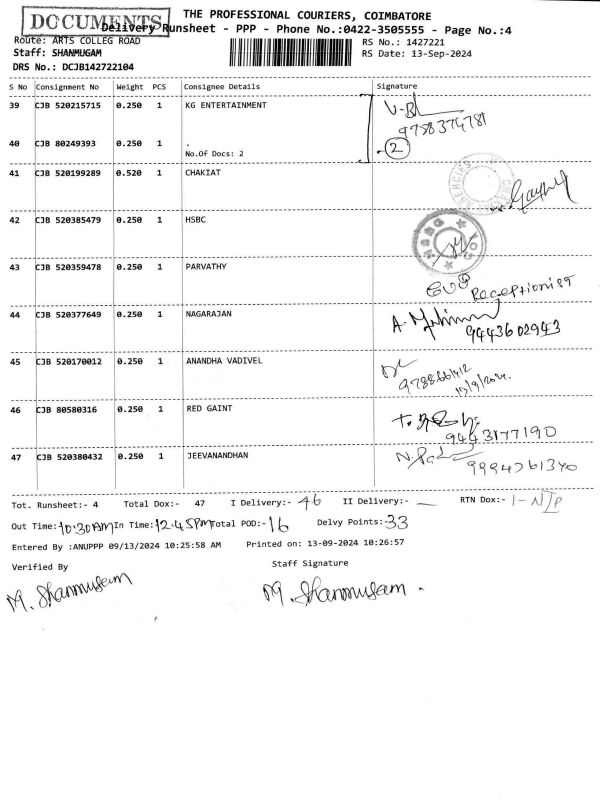 DOCUMENTS
THE PROFESSIONAL COURIERS, COIMBATORE
Delivery Runsheet - PPP - Phone No.:0422-3505555 - Page No.:4
Route: ARTS COLLEG ROAD
RS No.: 1427221
Staff: SHANMUGAM
RS Date: 13-Sep-2024
DRS No.: DCJB142722104
S No Consignment No Weight PCS Consignee Details Signature
39 CJB 520215715 0.250 1 KG ENTERTAINMENT
9758374781
40 CJB 80249393 0.250 1 .
No.Of Docs: 2
2
41 CJB 520199289 0.520 1 CHAKIAT
42 CJB 520385479 0.250 1 HSBC
43 CJB 520359478 0.250 1 PARVATHY
Receptionist
44 CJB 520377649 0.250 1 NAGARAJAN
9443602943
45 CJB 520170012 0.250 1 ANANDHA VADIVEL
13/9/2024.
46 CJB 80580316 0.250 1 RED GAINT
9443177190
47 CJB 520380432 0.250 1 JEEVANANDHAN
9994261340
Tot. Runsheet:- 4 Total Dox:- 47 I Delivery:- 46 II Delivery:- — RTN Dox:- 1-N/P
Out Time:10:30AM In Time:12.45PM Total POD:- 16 Delvy Points:- 33
Entered By :ANUPPP 09/13/2024 10:25:58 AM Printed on: 13-09-2024 10:26:57
Verified By Staff Signature
M. Shanmugam M. Shanmugam.